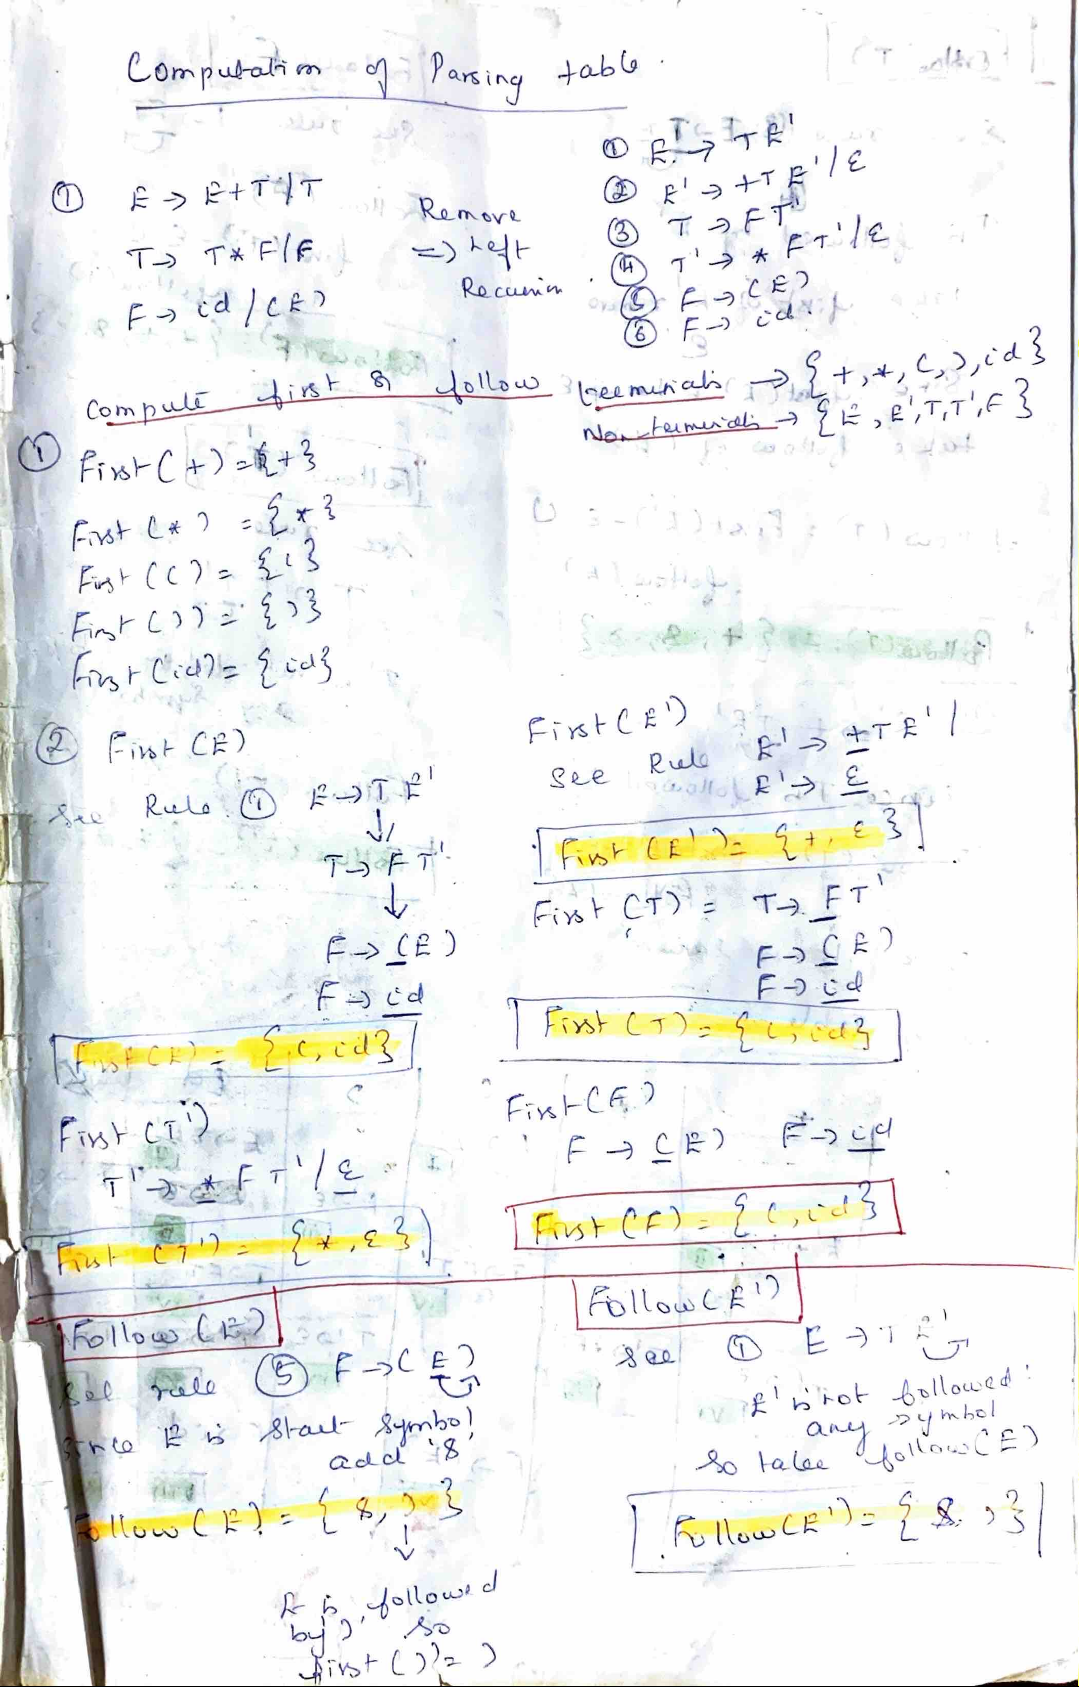 Computation of Parsing table.
① E → E+T/T
T → T* F/F
F → id/(E)
Remove
=> Left
Recursion
① E → TE'
② E' → +TE'/ε
③ T → FT'
④ T' → * FT'/ε
⑤ F → (E)
⑥ F → id.
Compute first & follow
Terminals → {+,*,(,),id}
Non-terminals → {E,E',T,T',F}
① First(+)={+}
First(*) = {*}
First(()= {(}
First())= {)}
First(id)= {id}
② First(E)
See Rule ① E → TE'
T → FT'
F → (E)
F → id
First(E) = {(,id}
First(E')
See Rule E' → +TE'/
E' → ε
First(E')= {+, ε}
First(T) = T → FT'
F → (E)
F → id
First(T)= {(,id}
First(T')
T' → * FT'/ε
First(T') = {*,ε}
First(F)
F → (E) F → id
First(F) = {(,id}
Follow(E)
See rule ⑤ F → (E)
since E is start symbol
add '$
Follow(E) = { $, ) }
↓
E is followed
by ) so
first())= )
Follow(E')
See ① E → TE'
E' is not followed
any symbol
so take follow(E)
Follow(E')= { $ )}